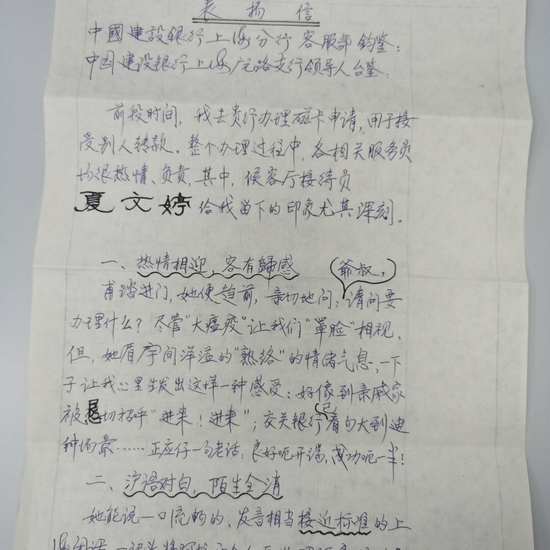 表扬信
中國建設银行上海分行客服部 钧鉴：
中国建设银行上海广元路支行领导人台鉴：
前段时间，我去贵行办理磁卡申请，用于接
受别人转款。整个办理过程中，各相关服务员
均很热情、负责，其中，候客厅接待员
夏文婷 给我留下的印象尤其深刻。
一、热情相迎，客有歸感
甫踏进门，她便趋前，亲切地问：爷叔，请问要
办理什么？尽管"大瘟疫"让我们"罩脸"相视，
但，她眉宇间洋溢的"熟络"的情绪气息，一下
子让我心里生发出这样一种感受：好像到亲戚家
被恳切招呼"进来！进来"；交关银行看勿大到迪
种场景……正应仔一句老话：良好呃开端，成功呃一半！
二、沪语对白，陌生全消
她能说一口流畅的、发音相当接近标准的上